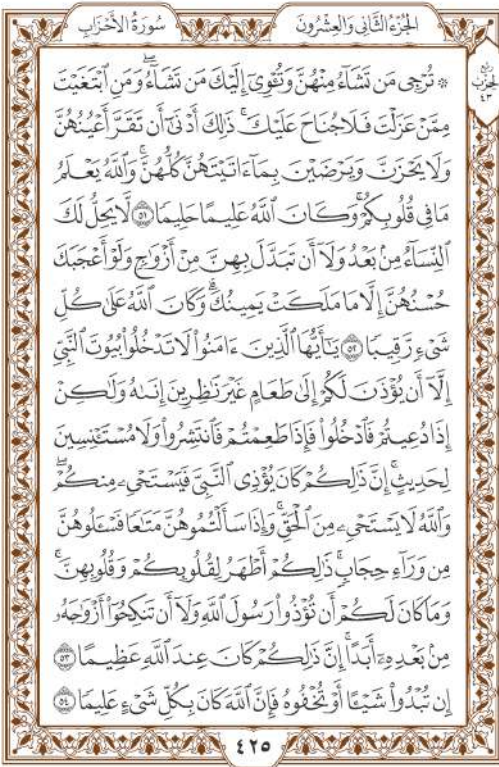 الجُزْءُ الثَّانِي وَالعِشْرُونَ سُورَةُ الأَحْزَابِ
رُبْعُ
الحِزْبِ
٤٣
۞ تُرْجِى مَن تَشَآءُ مِنْهُنَّ وَتُـْٔوِىٓ إِلَيْكَ مَن تَشَآءُۖ وَمَنِ ٱبْتَغَيْتَ
مِمَّنْ عَزَلْتَ فَلَا جُنَاحَ عَلَيْكَۚ ذَٰلِكَ أَدْنَىٰٓ أَن تَقَرَّ أَعْيُنُهُنَّ
وَلَا يَحْزَنَّ وَيَرْضَيْنَ بِمَآ ءَاتَيْتَهُنَّ كُلُّهُنَّۚ وَٱللَّهُ يَعْلَمُ
مَا فِى قُلُوبِكُمْۚ وَكَانَ ٱللَّهُ عَلِيمًا حَلِيمًا ٥١ لَّا يَحِلُّ لَكَ
ٱلنِّسَآءُ مِنۢ بَعْدُ وَلَآ أَن تَبَدَّلَ بِهِنَّ مِنْ أَزْوَٰجٍ وَلَوْ أَعْجَبَكَ
حُسْنُهُنَّ إِلَّا مَا مَلَكَتْ يَمِينُكَۗ وَكَانَ ٱللَّهُ عَلَىٰ كُلِّ
شَىْءٍ رَّقِيبًا ٥٢ يَٰٓأَيُّهَا ٱلَّذِينَ ءَامَنُوا۟ لَا تَدْخُلُوا۟ بُيُوتَ ٱلنَّبِىِّ
إِلَّآ أَن يُؤْذَنَ لَكُمْ إِلَىٰ طَعَامٍ غَيْرَ نَٰظِرِينَ إِنَىٰهُ وَلَٰكِنْ
إِذَا دُعِيتُمْ فَٱدْخُلُوا۟ فَإِذَا طَعِمْتُمْ فَٱنتَشِرُوا۟ وَلَا مُسْتَـْٔنِسِينَ
لِحَدِيثٍۚ إِنَّ ذَٰلِكُمْ كَانَ يُؤْذِى ٱلنَّبِىَّ فَيَسْتَحْىِۦ مِنكُمْۖ
وَٱللَّهُ لَا يَسْتَحْىِۦ مِنَ ٱلْحَقِّۚ وَإِذَا سَأَلْتُمُوهُنَّ مَتَٰعًا فَسْـَٔلُوهُنَّ
مِن وَرَآءِ حِجَابٍۚ ذَٰلِكُمْ أَطْهَرُ لِقُلُوبِكُمْ وَقُلُوبِهِنَّۚ
وَمَا كَانَ لَكُمْ أَن تُؤْذُوا۟ رَسُولَ ٱللَّهِ وَلَآ أَن تَنكِحُوٓا۟ أَزْوَٰجَهُۥ
مِنۢ بَعْدِهِۦٓ أَبَدًاۚ إِنَّ ذَٰلِكُمْ كَانَ عِندَ ٱللَّهِ عَظِيمًا ٥٣
إِن تُبْدُوا۟ شَيْـًٔا أَوْ تُخْفُوهُ فَإِنَّ ٱللَّهَ كَانَ بِكُلِّ شَىْءٍ عَلِيمًا ٥٤
٤٢٥